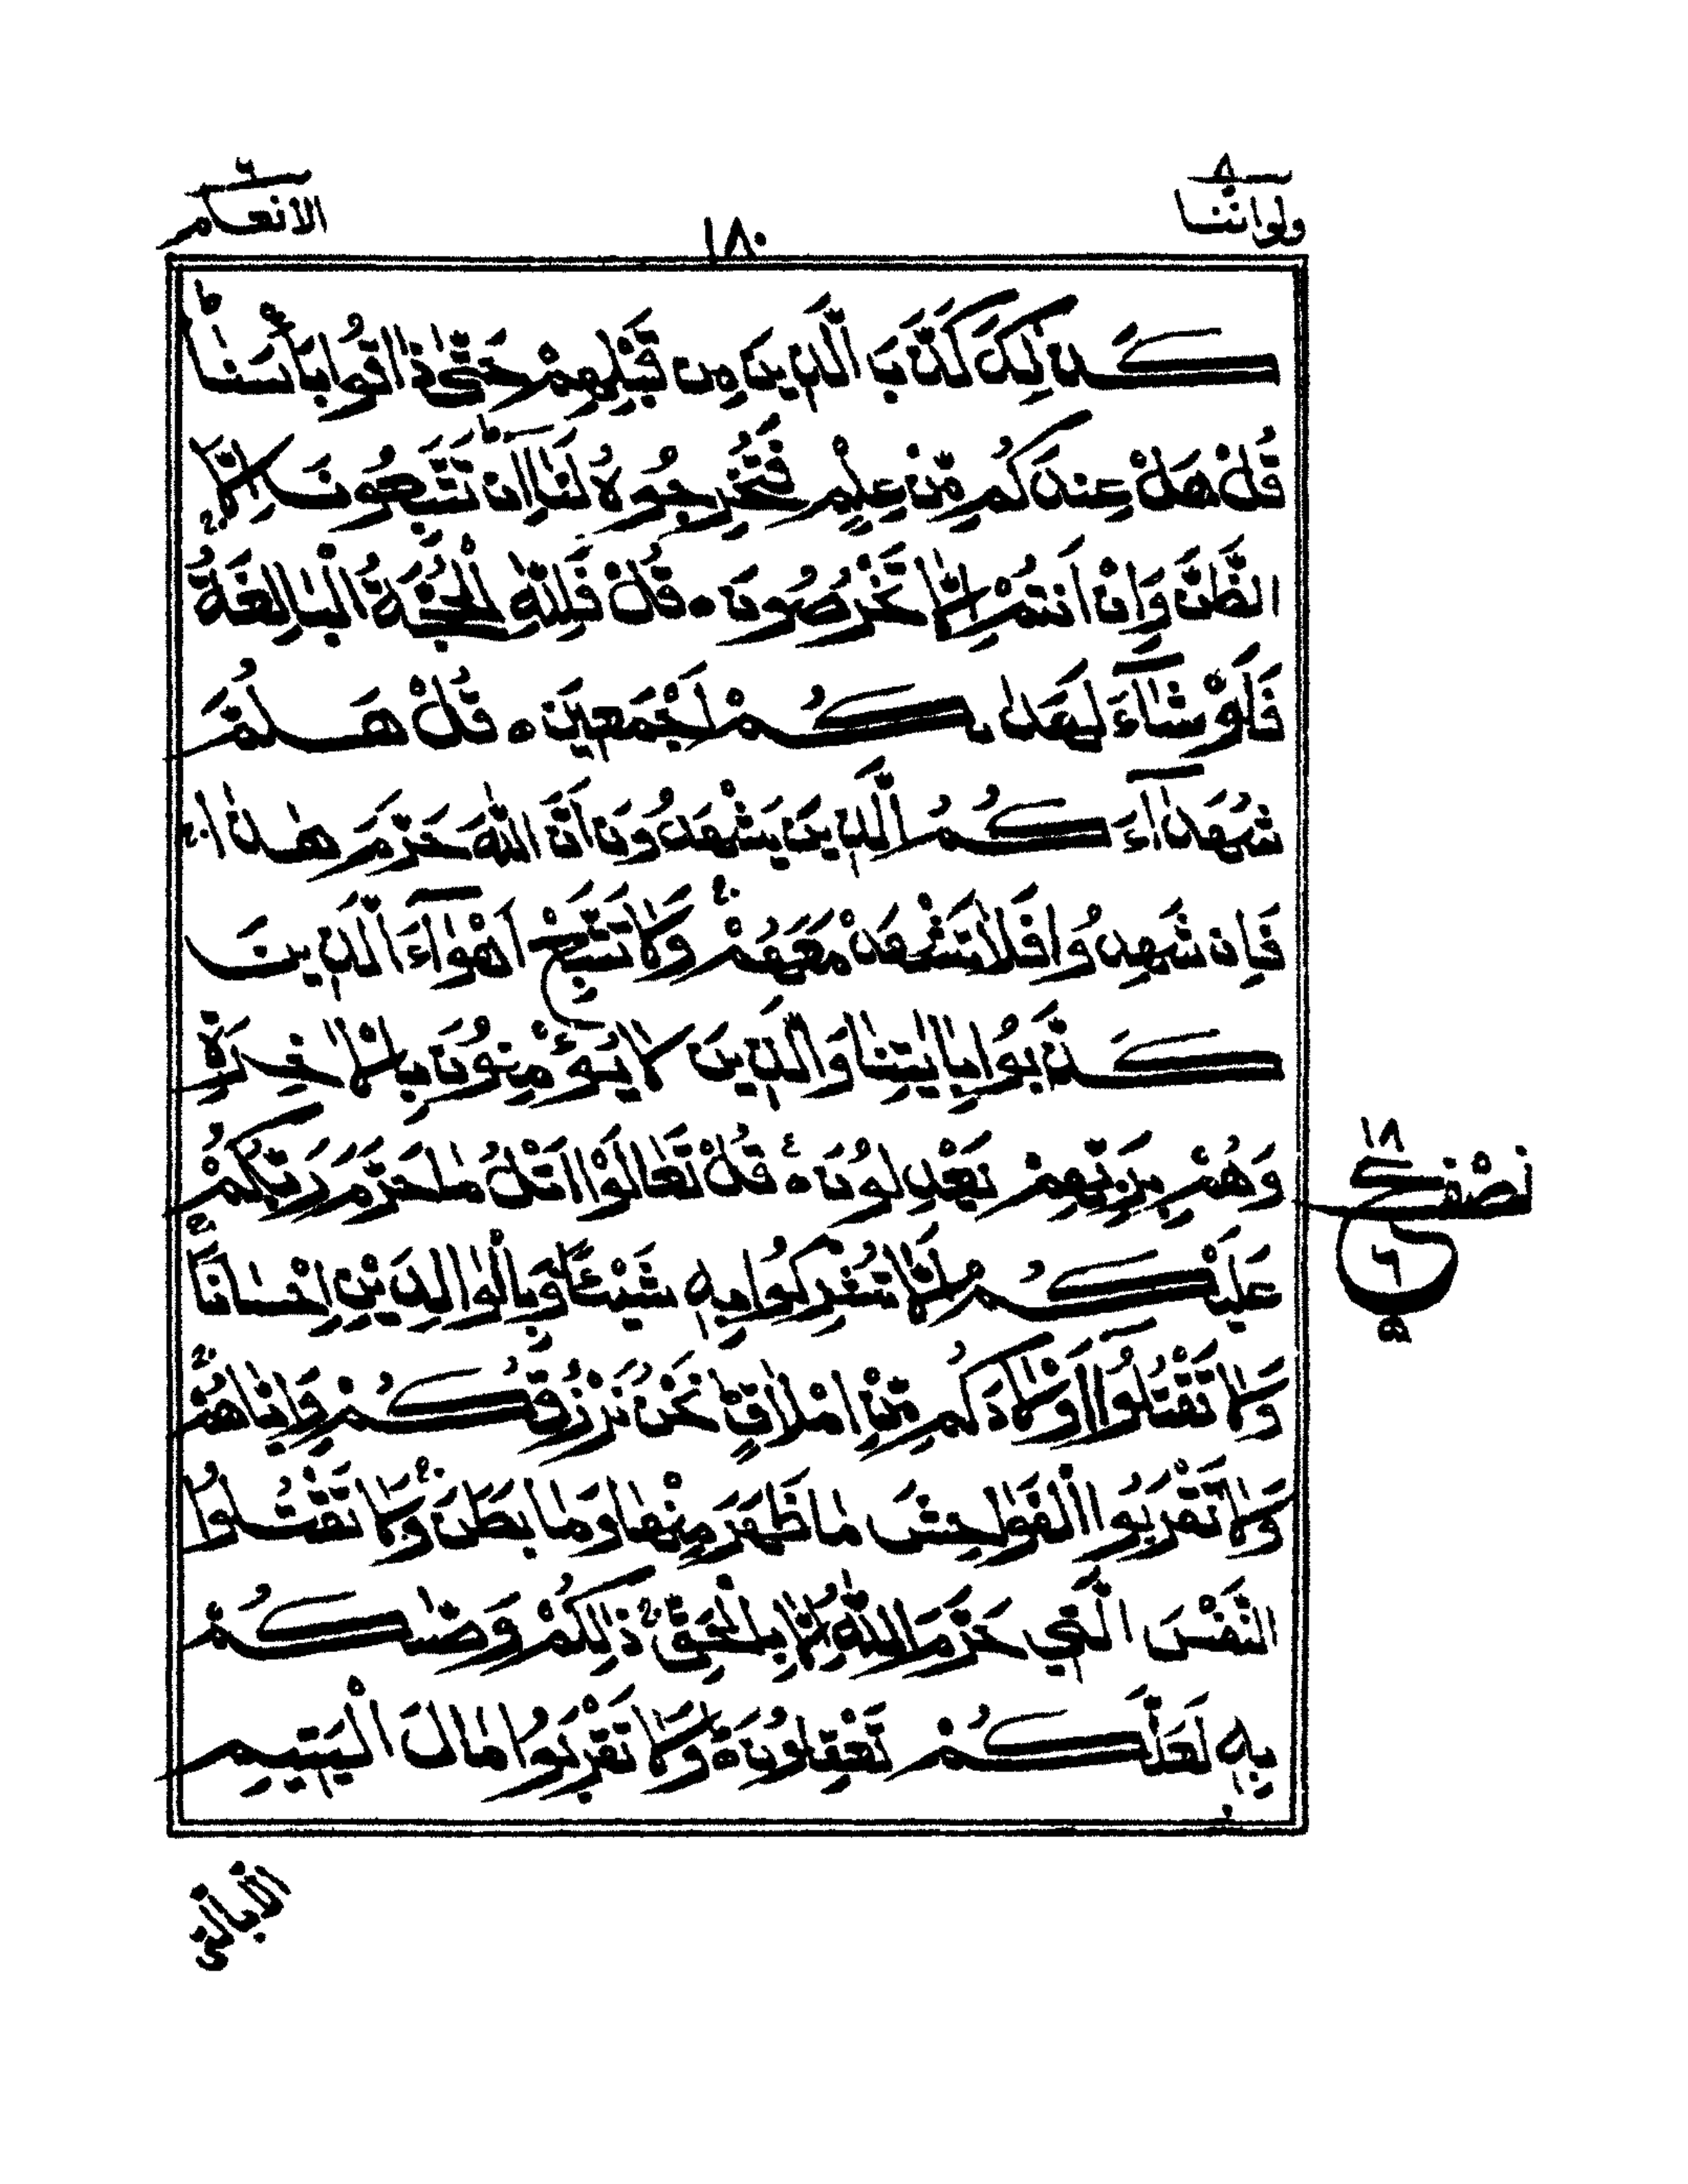 ولواننا ٨
١٨٠
الانعام ٦
كَذٰلِكَ كَذَّبَ الَّذِينَ مِن قَبْلِهِمْ حَتّٰى ذَاقُوا بَأْسَنَا ط
قُلْ هَلْ عِندَكُم مِّنْ عِلْمٍ فَتُخْرِجُوهُ لَنَا ط اِن تَتَّبِعُونَ اِلَّا
الظَّنَّ وَاِنْ اَنتُمْ اِلَّا تَخْرُصُونَ ہ قُلْ فَلِلّٰهِ الْحُجَّةُ الْبَالِغَةُ ج
فَلَوْ شَآءَ لَهَدٰىكُمْ اَجْمَعِينَ ہ قُلْ هَلُمَّ
شُهَدَآءَكُمُ الَّذِينَ يَشْهَدُونَ اَنَّ اللّٰهَ حَرَّمَ هٰذَا ج
فَاِن شَهِدُوا فَلَا تَشْهَدْ مَعَهُمْ ج وَلَا تَتَّبِعْ اَهْوَآءَ الَّذِينَ
كَذَّبُوا بِاٰيٰتِنَا وَالَّذِينَ لَا يُؤْمِنُونَ بِالْاٰخِرَةِ
وَهُمْ بِرَبِّهِمْ يَعْدِلُونَ ہ ع قُلْ تَعَالَوْا اَتْلُ مَا حَرَّمَ رَبُّكُمْ
عَلَيْكُمْ اَلَّا تُشْرِكُوا بِهٖ شَيْئًا وَّبِالْوَالِدَيْنِ اِحْسَانًا ج
وَلَا تَقْتُلُوٓا اَوْلَادَكُم مِّنْ اِمْلَاقٍ ط نَحْنُ نَرْزُقُكُمْ وَاِيَّاهُمْ ج
وَلَا تَقْرَبُوا الْفَوَاحِشَ مَا ظَهَرَ مِنْهَا وَمَا بَطَنَ ج وَلَا تَقْتُلُوا
النَّفْسَ الَّتِي حَرَّمَ اللّٰهُ اِلَّا بِالْحَقِّ ط ذٰلِكُمْ وَصّٰىكُمْ
بِهٖ لَعَلَّكُمْ تَعْقِلُونَ ہ وَلَا تَقْرَبُوا مَالَ الْيَتِيمِ
١٨
نصف
ع
٦
٥
الا بالتي